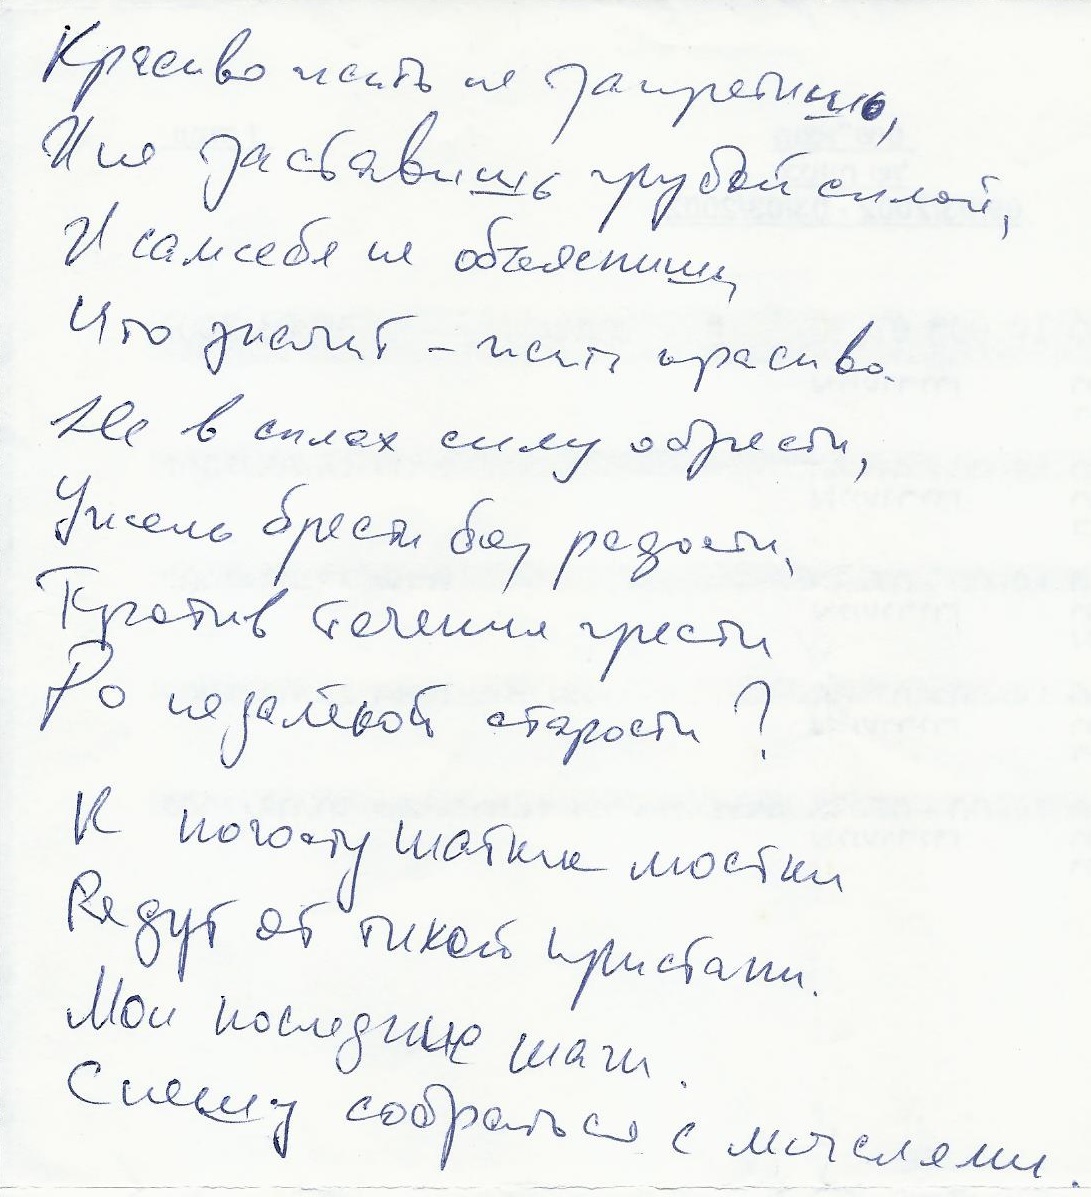 Красиво жить не запретишь,
И не заставишь грубой силой,
И сам себе не объяснишь,
Что значит – жить красиво.
Не в силах силу обрести,
Ужель брести без радости,
Против течения грести
До недалёкой старости?
К погосту шаткие мостки
Ведут от тихой пристани.
Мои последние шаги.
Спешу собраться с мыслями.